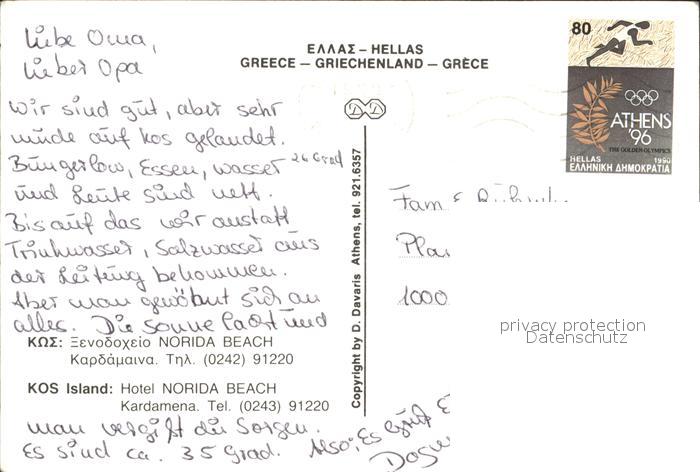 Liebe Oma,
Lieber Opa
Wir sind gut, aber sehr
müde auf Kos gelandet.
Bungerlow, Essen, Wasser 26 Grad
und Leute sind nett.
Bis auf das wir anstatt
Trinkwasser, Salzwasser aus
der Leitung bekommen.
Aber man gewöhnt sich an
alles. Die Sonne lacht und
ΚΩΣ: Ξενοδοχείο NORIDA BEACH
Καρδάμαινα. Τηλ. (0242) 91220
KOS Island: Hotel NORIDA BEACH
Kardamena. Tel. (0243) 91220
man vergißt die Sorgen.
Es sind ca. 35 Grad. Also, Es grüßt
ΕΛΛΑΣ – HELLAS
GREECE – GRIECHENLAND – GRÈCE
Copyright by D. Davaris Athens, tel. 921.6357
80
ATHENS
'96
THE GOLDEN OLYMPICS
HELLAS 1990
ΕΛΛΗΝΙΚΗ ΔΗΜΟΚΡΑΤΙΑ
Fam
1000
privacy protection
Datenschutz